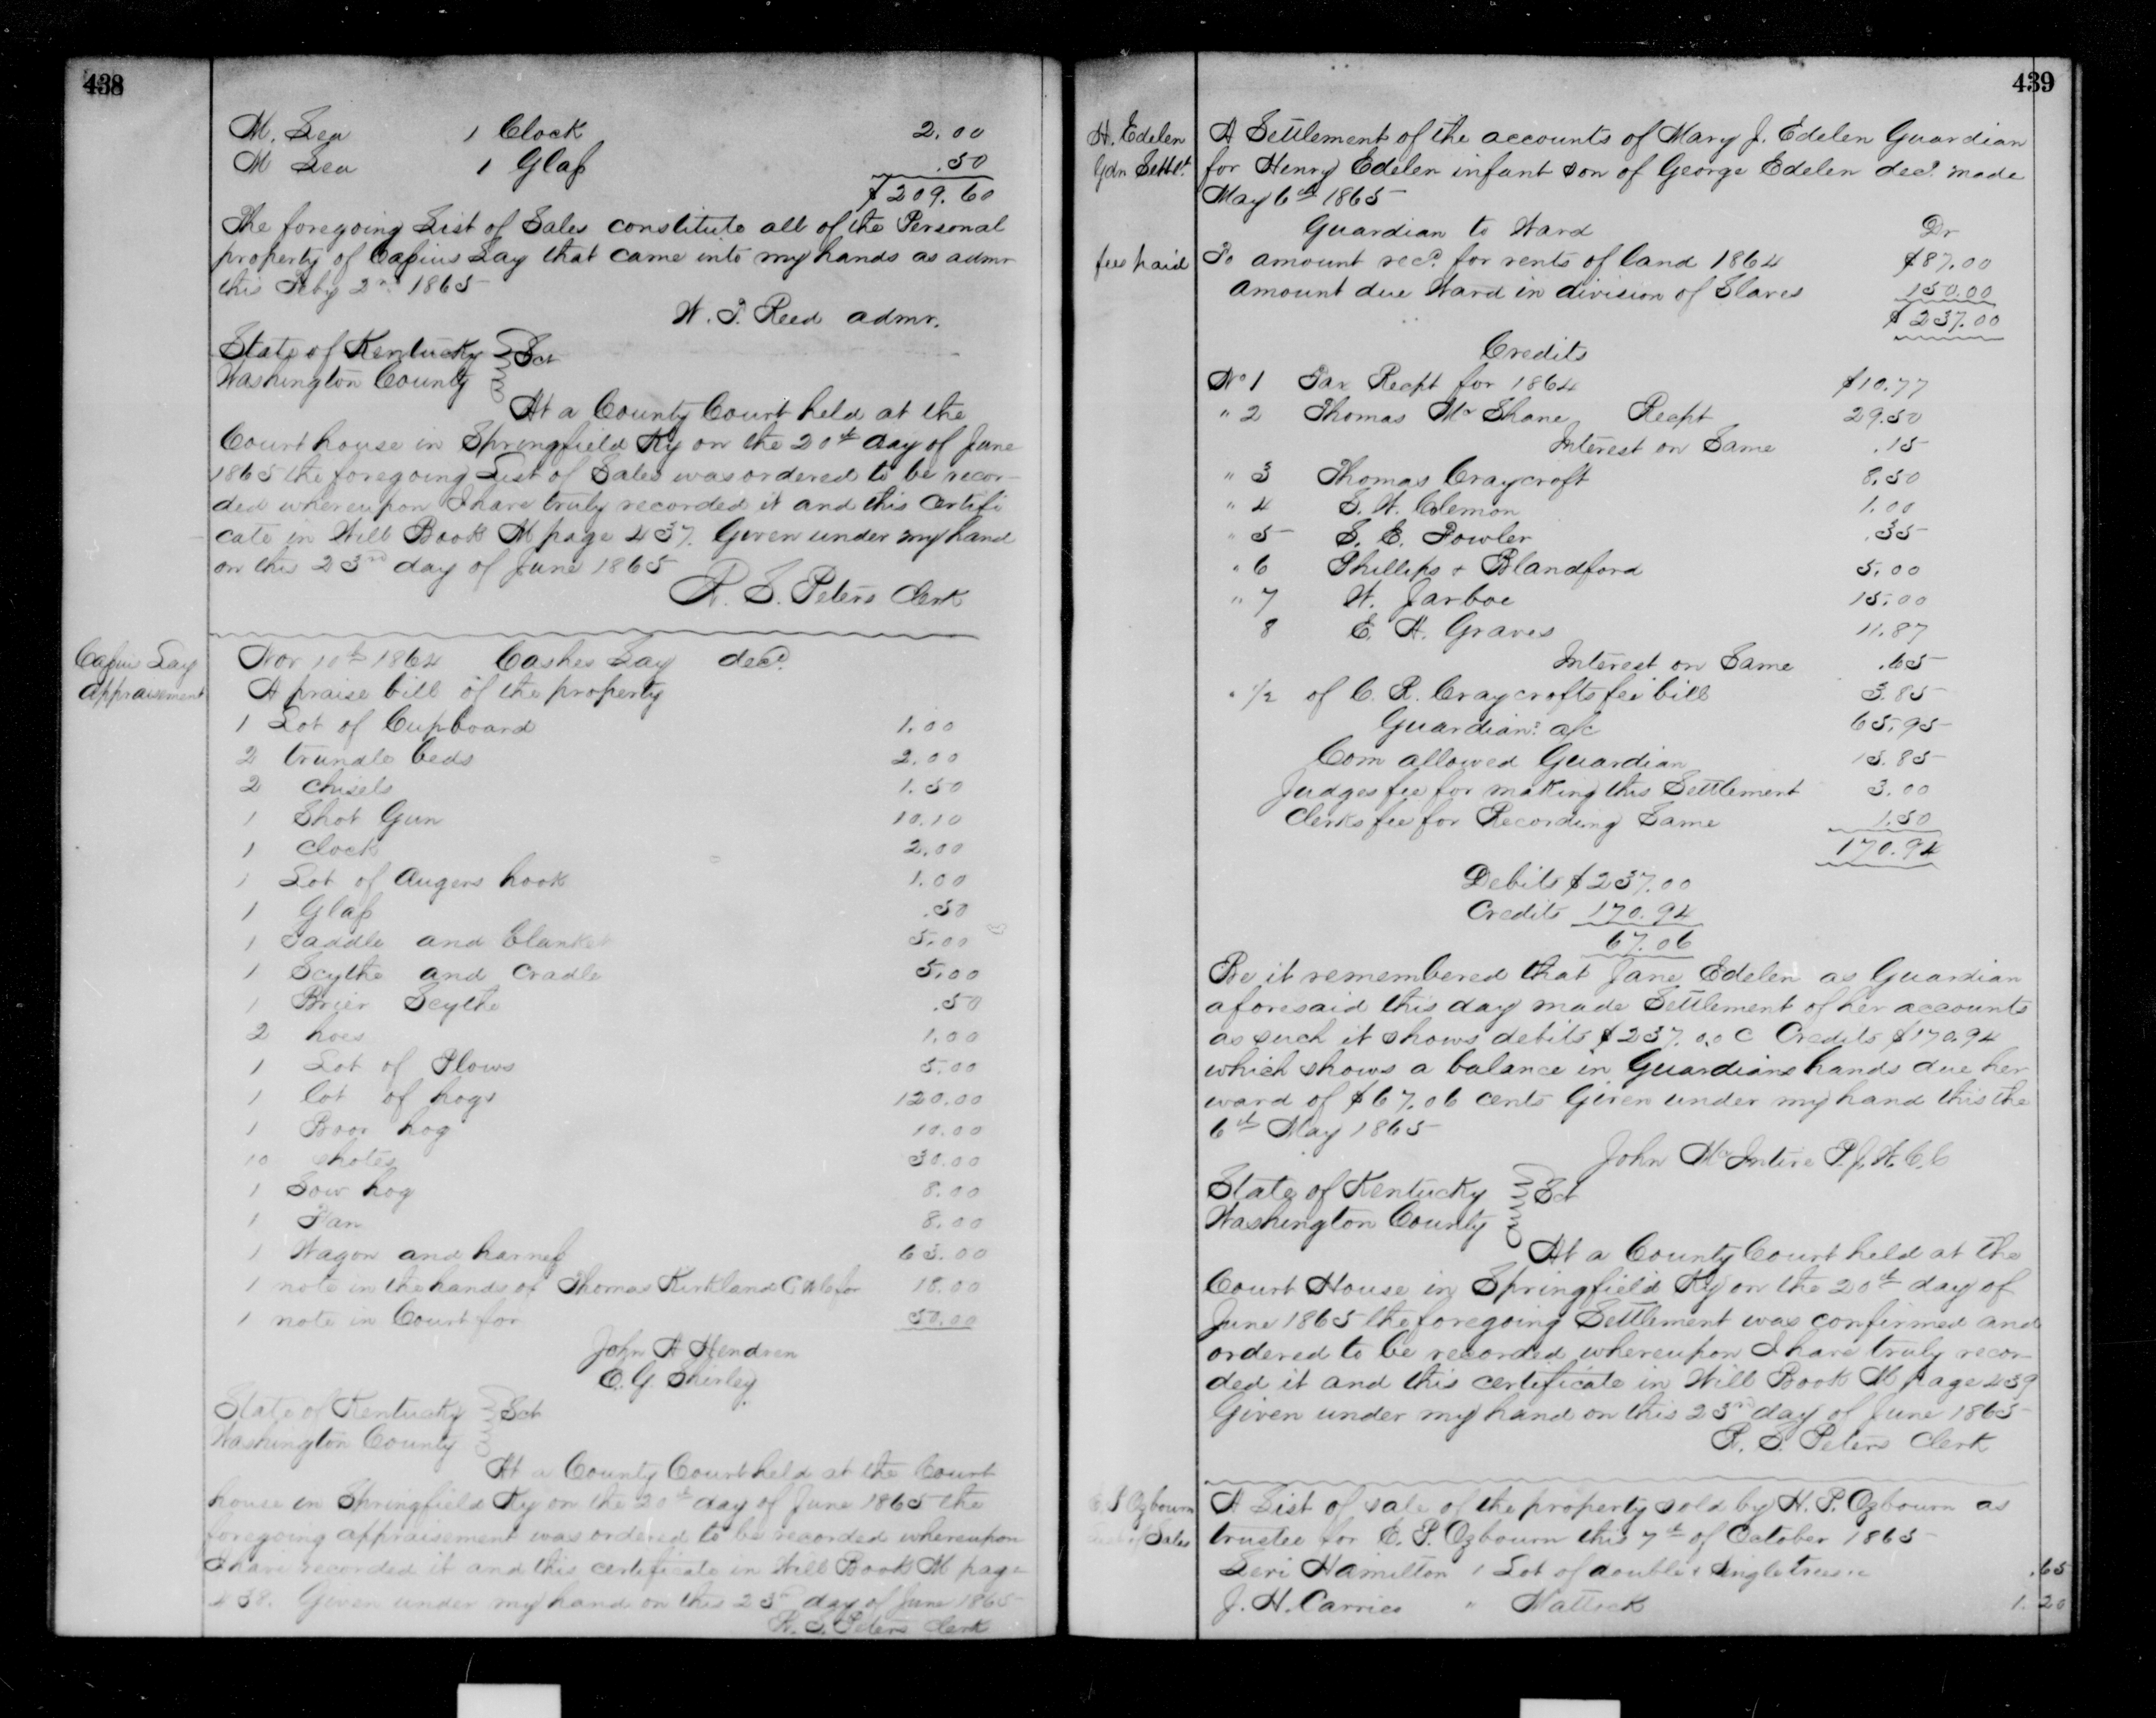 438
M. Lea 1 Clock 2.00
M Lea 1 Glass .50
$209.60
The foregoing List of Sales constitute all of the Personal
property of Cassius Lay that came into my hands as admr
this Feby 2nd 1865
W. T. Reed admr.
State of Kentucky } Sct
Washington County
At a County Court held at the
Court house in Springfield Ky on the 20th day of June
1865 the foregoing List of Sales was ordered to be recor-
ded whereupon I have truly recorded it and this Certifi
cate in Will Book M page 437. Given under my hand
on this 23rd day of June 1865
R. S. Peters Clerk
Cassius Lay
appraisement
Nov 10th 1864 Cashes Lay decd.
A praise bill of the property
1 Lot of Cupboard 1.00
2 trundle beds 2.00
2 chisels 1.50
1 Shot Gun 10.10
1 clock 2.00
1 Lot of augers hook 1.00
1 Glass .50
1 Saddle and blanket 5.00
1 Scythe and Cradle 5.00
1 Brier Scythe .50
2 hoes 1.00
1 Lot of Plows 5.00
1 lot of hogs 120.00
1 Boor hog 10.00
10 shotes 30.00
1 Sow hog 8.00
1 Fan 8.00
1 Wagon and harness 63.00
1 note in the hands of Thomas Kirkland for 18.00
1 note in Court for 50.00
John A Hendren
E. G. Shirley
State of Kentucky } Sct
Washington County
At a County Court held at the Court
house in Springfield Ky on the 20th day of June 1865 the
foregoing appraisement was ordered to be recorded whereupon
I have recorded it and this certificate in Will Book M page
438. Given under my hand on this 23rd day of June 1865
R. S. Peters Clerk
439
H. Edelen
Gdn Settlt.
A Settlement of the accounts of Mary J. Edelen Guardian
for Henry Edelen infant son of George Edelen decd. made
May 6th 1865
Guardian to Ward Dr
fees paid
To amount recd. for rents of land 1864 $87.00
amount due Ward in division of Slaves 150.00
$237.00
Credits
No 1 Tax Recpt for 1864 $10.77
" 2 Thomas Mc Shane Recpt 29.50
Interest on Same .15
" 3 Thomas Craycroft 8.50
" 4 S. W. Colemon 1.00
" 5 S. E. Fowler .35
" 6 Phillips & Blandford 5.00
" 7 W. Jarboe 15.00
8 E. H. Graves 11.87
Interest on Same .65
" 1/2 of C. R. Craycrofts fee bill 3.85
Guardians a/c 65.95
Com allowed Guardian 13.85
Judges fee for making this Settlement 3.00
Clerks fee for Recording Same 1.50
170.94
Debits $237.00
Credits 170.94
67.06
Be it remembered that Jane Edelen as Guardian
aforesaid this day made Settlement of her accounts
as such it shows debits $237.00 C Credits $170.94
which shows a balance in Guardians hands due her
ward of $67.06 cents Given under my hand this the
6th May 1865
John McIntire P. J. W. C. C
State of Kentucky } Sct
Washington County
At a County Court held at the
Court House in Springfield Ky on the 20th day of
June 1865 the foregoing Settlement was confirmed and
ordered to be recorded whereupon I have truly recor-
ded it and this certificate in Will Book M page 439
Given under my hand on this 23rd day of June 1865
R. S. Peters Clerk
Ozbourn
Sales
A List of sale of the property sold by H. P. Ozbourn as
trustee for E. P. Ozbourn this 7th of October 1865
Levi Hamilton 1 Lot of double & Singletrees .65
J. H. Carrico " Mattock 1.20